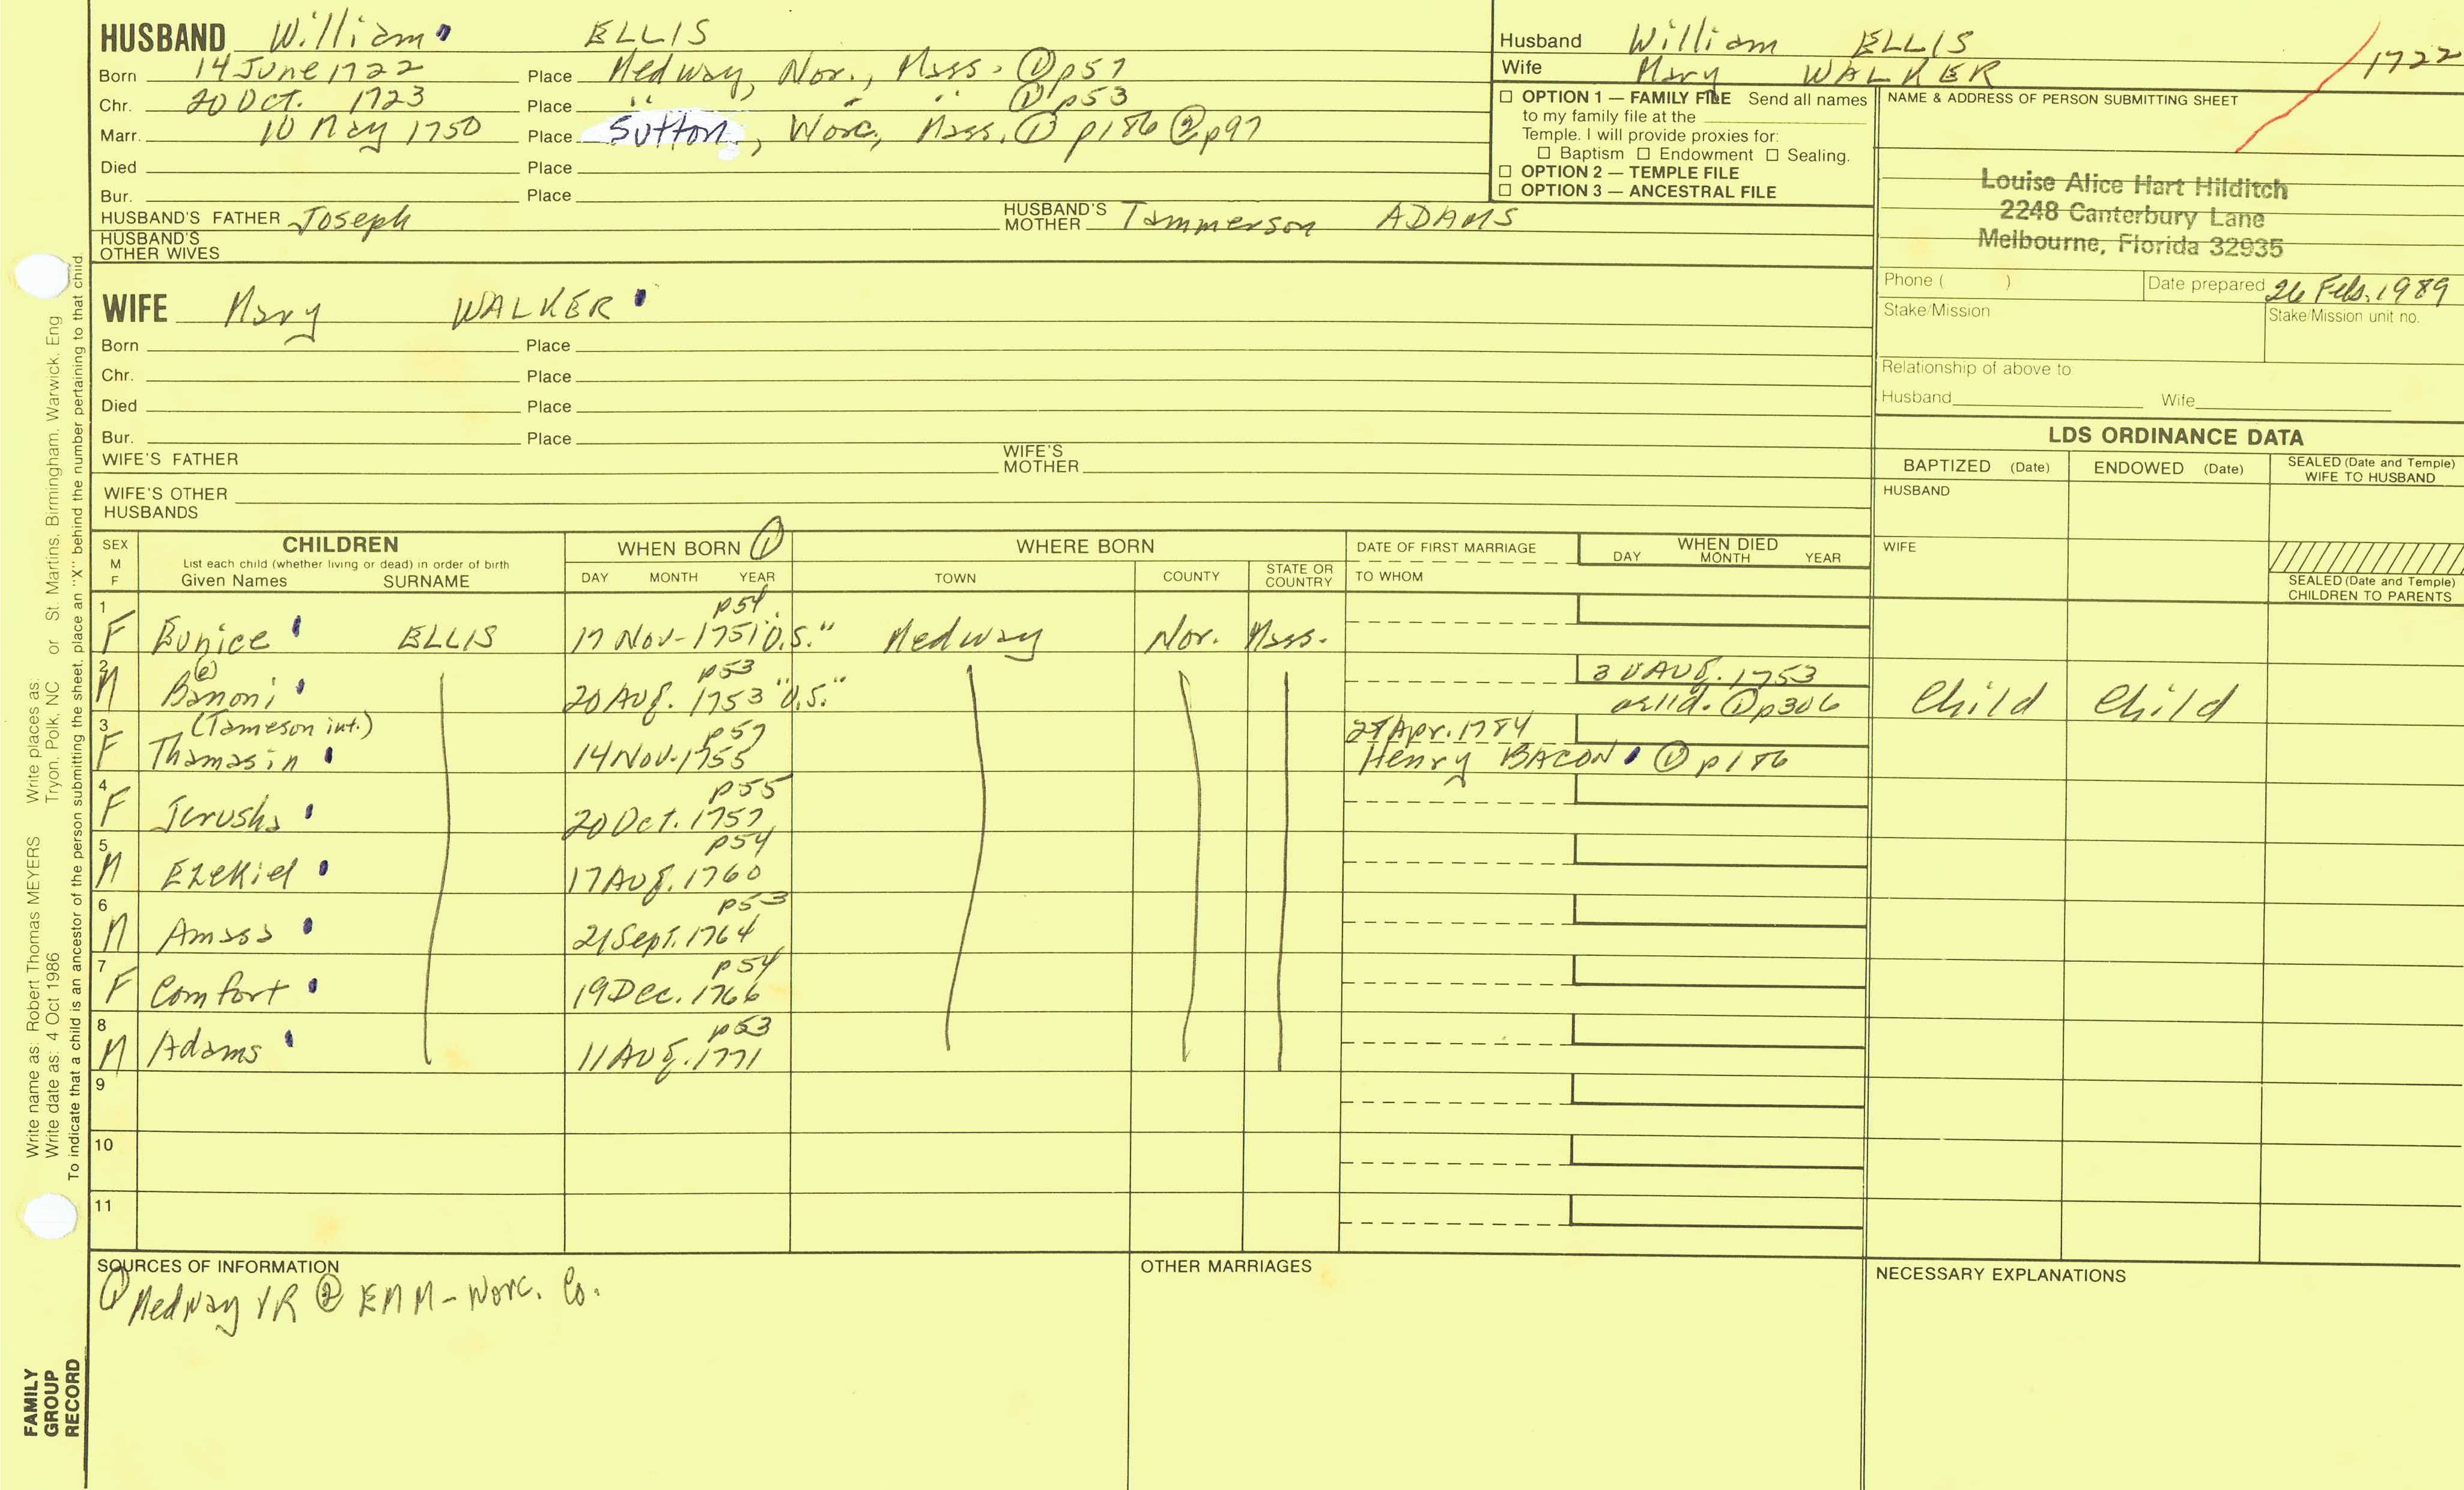 HUSBAND William ELLIS
Born 14 June 1722 Place Medway, Nor., Mass. ① p57
Chr. 20 Oct. 1723 Place " " " ① p53
Marr. 10 May 1750 Place Sutton, Worc, Mass. ① p186 ② p97
Died Place
Bur. Place
HUSBAND'S FATHER Joseph HUSBAND'S MOTHER Tammerson ADAMS
HUSBAND'S OTHER WIVES
Husband William ELLIS
Wife Mary WALKER
1722
☐ OPTION 1 — FAMILY FILE Send all names
to my family file at the
Temple. I will provide proxies for:
☐ Baptism ☐ Endowment ☐ Sealing.
☐ OPTION 2 — TEMPLE FILE
☐ OPTION 3 — ANCESTRAL FILE
NAME & ADDRESS OF PERSON SUBMITTING SHEET
Louise Alice Hart Hilditch
2248 Canterbury Lane
Melbourne, Florida 32935
Phone ( ) Date prepared 26 Feb. 1989
Stake/Mission Stake/Mission unit no.
Relationship of above to
Husband Wife
WIFE Mary WALKER
Born Place
Chr. Place
Died Place
Bur. Place
WIFE'S FATHER WIFE'S MOTHER
WIFE'S OTHER HUSBANDS
LDS ORDINANCE DATA
BAPTIZED (Date) ENDOWED (Date) SEALED (Date and Temple) WIFE TO HUSBAND
HUSBAND
WIFE
SEALED (Date and Temple) CHILDREN TO PARENTS
SEX M F
CHILDREN
List each child (whether living or dead) in order of birth
Given Names SURNAME
WHEN BORN ①
DAY MONTH YEAR
WHERE BORN
TOWN COUNTY STATE OR COUNTRY
DATE OF FIRST MARRIAGE
TO WHOM
WHEN DIED
DAY MONTH YEAR
1 p54
F Eunice ELLIS 17 Nov. 1751 "O.S." Medway Nor. Mass.
2 (e) p53 30 Aug. 1753
M Banoni 20 Aug. 1753 "O.S." ae 11d. ① p306 Child Child
3 (Tameson int.) p57 28 Apr. 1784
F Thamasin 14 Nov. 1755 Henry BACON ① p186
4 p55
F Jerusha 20 Oct. 1757
5 p54
M Ezekiel 17 Aug. 1760
6 p53
M Amasa 21 Sept. 1764
7 p54
F Comfort 19 Dec. 1766
8 p53
M Adams 11 Aug. 1771
9
10
11
SOURCES OF INFORMATION
① Medway VR ② EMM - Worc. Co.
OTHER MARRIAGES
NECESSARY EXPLANATIONS
Write name as: Robert Thomas MEYERS Write places as: Tryon, Polk, NC or St Martins, Birmingham, Warwick, Eng
Write date as: 4 Oct 1986
To indicate that a child is an ancestor of the person submitting the sheet, place an "X" behind the number pertaining to that child.
FAMILY GROUP RECORD